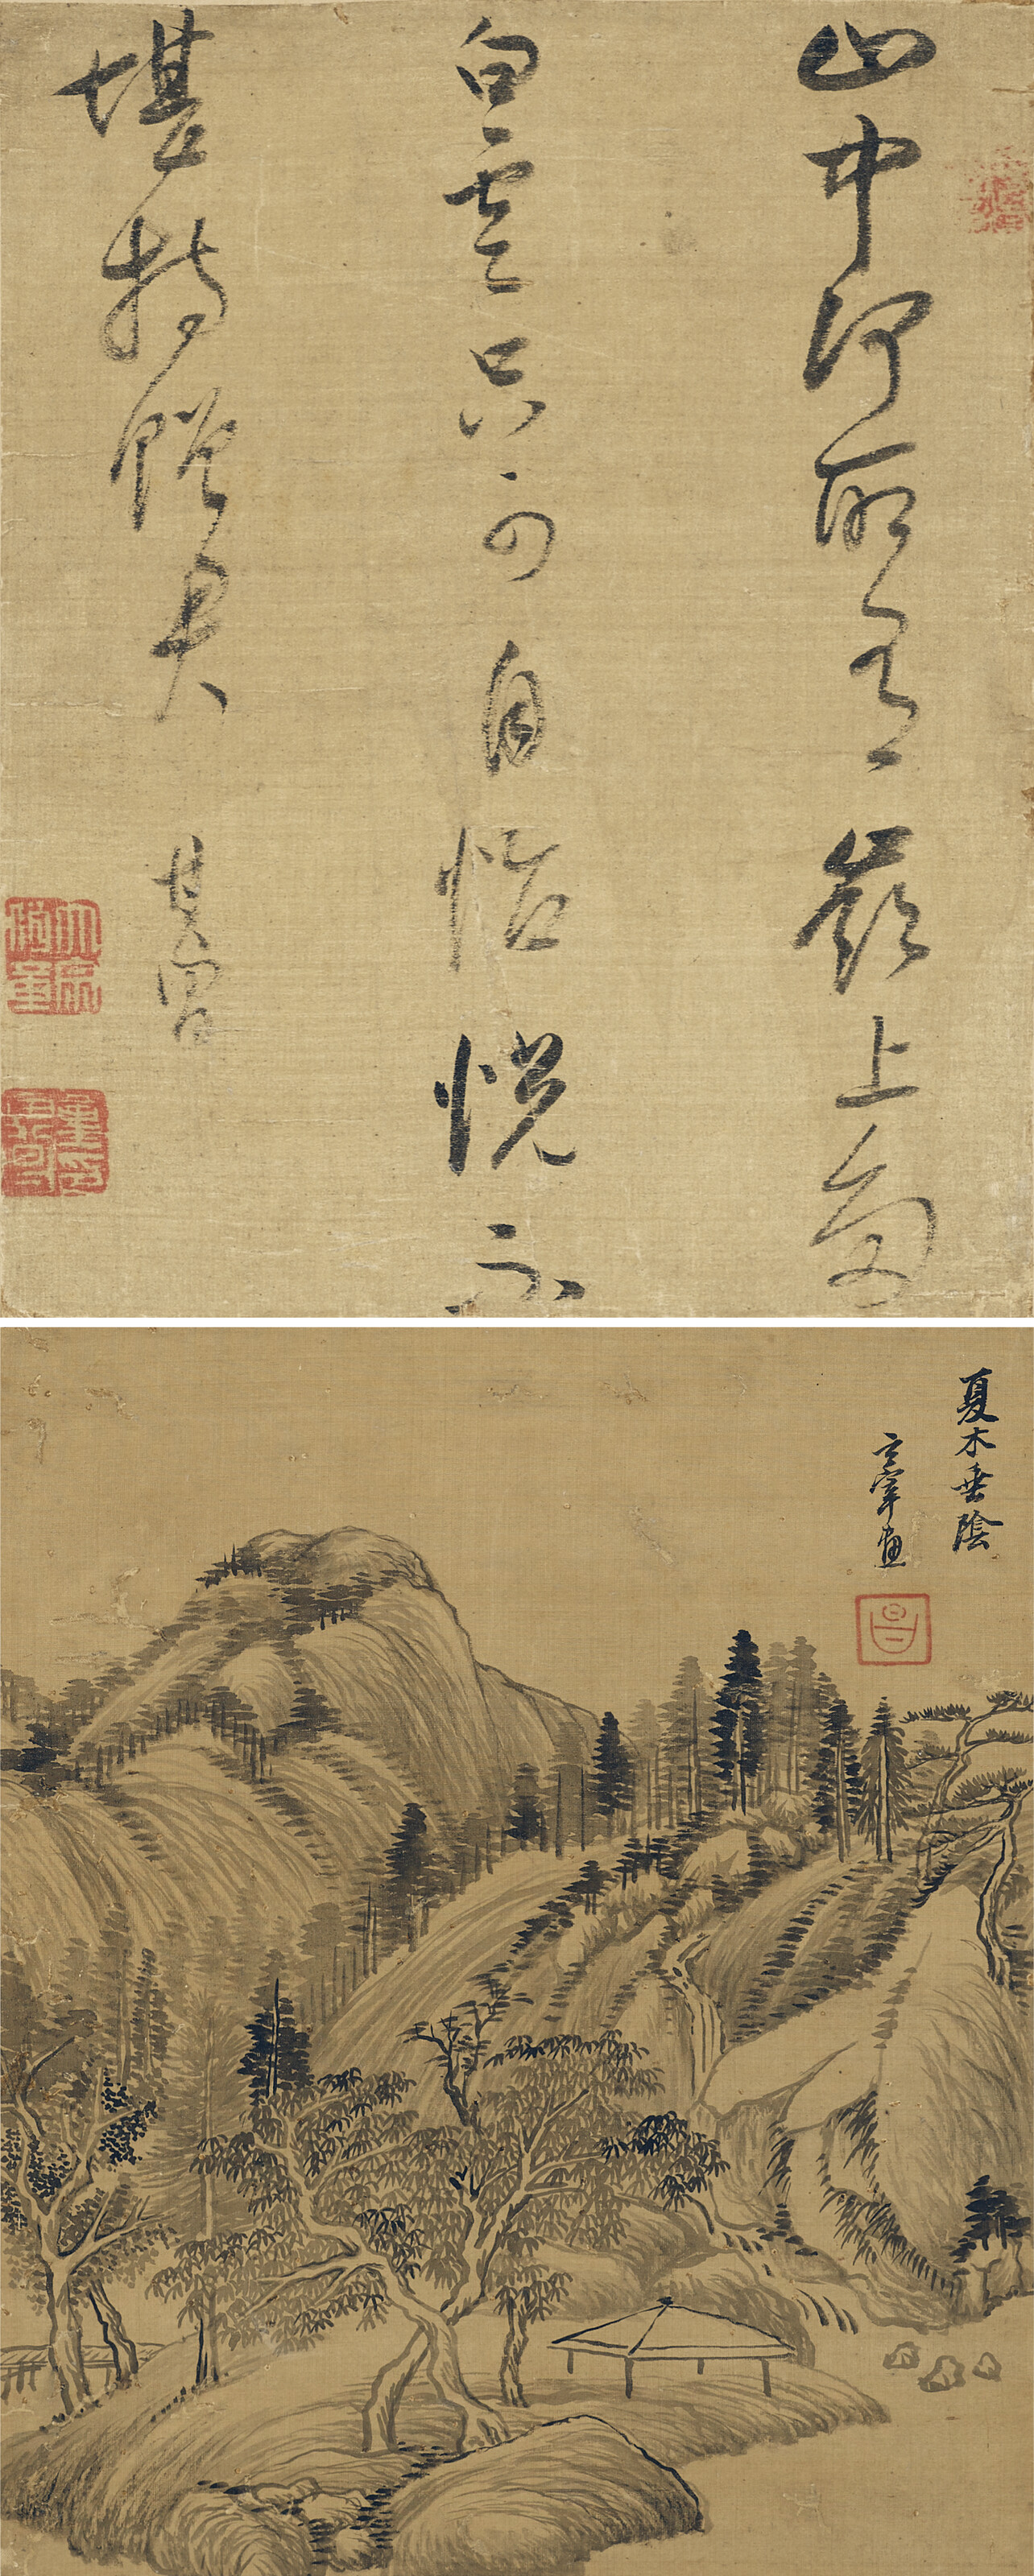 山中何所有嶺上多
白雲只可自怡悅不
堪持贈君 其昌
夏木垂陰
玄宰畫
昌